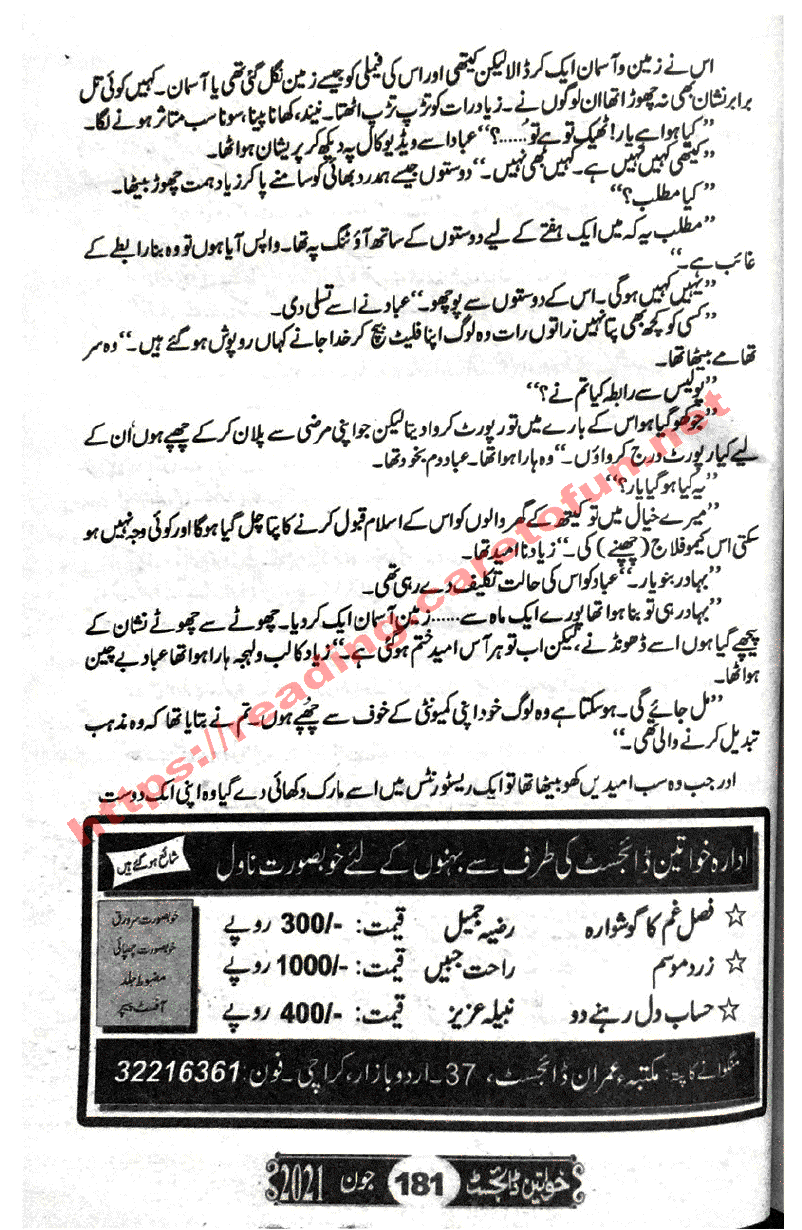 اس نے زمین و آسمان ایک کر ڈالا لیکن کیتھی اور اس کی فیملی کو جیسے زمین نگل گئی تھی یا آسمان۔ کہیں کوئی تل
برابر نشان بھی نہ چھوڑا تھا ان لوگوں نے۔ زیاد رات کو تڑپ تڑپ اٹھتا۔ نیند، کھانا پینا، سونا سب متاثر ہونے لگا۔
”کیا ہوا ہے یار! ٹھیک تو ہے تو......؟“ عباد اسے ویڈیو کال پہ دیکھ کر پریشان ہوا تھا۔
”کیتھی کہیں نہیں ہے۔ کہیں بھی نہیں۔“ دوستوں جیسے ہمدرد بھائی کو سامنے پا کر زیاد ہمت چھوڑ بیٹھا۔
”کیا مطلب؟“
”مطلب یہ کہ میں ایک ہفتے کے لیے دوستوں کے ساتھ آؤٹنگ پہ تھا۔ واپس آیا ہوں تو وہ بنا رابطے کے
غائب ہے۔“
”یہیں کہیں ہوگی۔ اس کے دوستوں سے پوچھو۔“ عباد نے اسے تسلی دی۔
”کسی کو کچھ بھی پتا نہیں راتوں رات وہ لوگ اپنا فلیٹ بیچ کر خدا جانے کہاں روپوش ہو گئے ہیں۔“ وہ سر
تھامے بیٹھا تھا۔
”پولیس سے رابطہ کیا تم نے؟“
”جو کھو گیا ہو اس کے بارے میں تو رپورٹ کروا دیتا لیکن جو اپنی مرضی سے پلان کر کے چھپے ہوں ان کے
لیے کیا رپورٹ درج کرواؤں۔“ وہ ہارا ہوا تھا۔ عباد دم بخود تھا۔
”یہ کیا ہو گیا یار؟“
”میرے خیال میں تو کیتھ کے گھر والوں کو اس کے اسلام قبول کرنے کا پتا چل گیا ہوگا اور کوئی وجہ نہیں ہو
سکتی اس کیموفلاج (چھپنے) کی۔“ زیاد نا امید تھا۔
”بہادر بنو یار۔“ عباد کو اس کی حالت تکلیف دے رہی تھی۔
”بہادر ہی تو بنا ہوا تھا پورے ایک ماہ سے...... زمین آسمان ایک کر دیا۔ چھوٹے سے چھوٹے نشان کے
پیچھے گیا ہوں اسے ڈھونڈنے، لیکن اب تو ہر آس امید ختم ہو گئی ہے۔“ زیاد کا لب و لہجہ ہارا ہوا تھا عباد بے چین
ہوا تھا۔
”مل جائے گی۔ ہو سکتا ہے وہ لوگ خود اپنی کمیونٹی کے خوف سے چھپے ہوں۔ تم نے بتایا تھا کہ وہ مذہب
تبدیل کرنے والی تھی۔“
اور جب وہ سب امیدیں کھو بیٹھا تھا تو ایک ریسٹورنٹس میں اسے مارک دکھائی دے گیا وہ اپنی ایک دوست
https://reading.caretofun.net
ادارہ خواتین ڈائجسٹ کی طرف سے بہنوں کے لئے خوبصورت ناول
شائع ہو گئے ہیں
☆ فصل غم کا گوشوارہ رضیہ جمیل قیمت: -/300 روپے
☆ زرد موسم راحت جبیں قیمت: -/1000 روپے
☆ حساب دل رہنے دو نبیلہ عزیز قیمت: -/400 روپے
خوبصورت سرورق
خوبصورت چھپائی
مضبوط جلد
آفسٹ پیپر
منگوانے کا پتہ: مکتبہ عمران ڈائجسٹ، 37۔ اردو بازار، کراچی۔ فون: 32216361
خواتین ڈائجسٹ 181 جون 2021